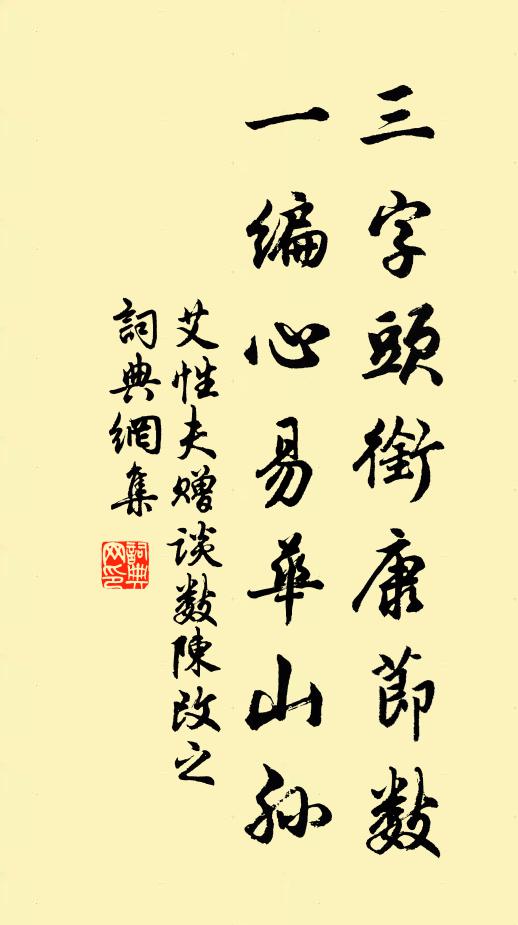 三字頭銜康節數
一編心易華山孫
艾性夫贈談數陳改之
詞典網集
詞典網印